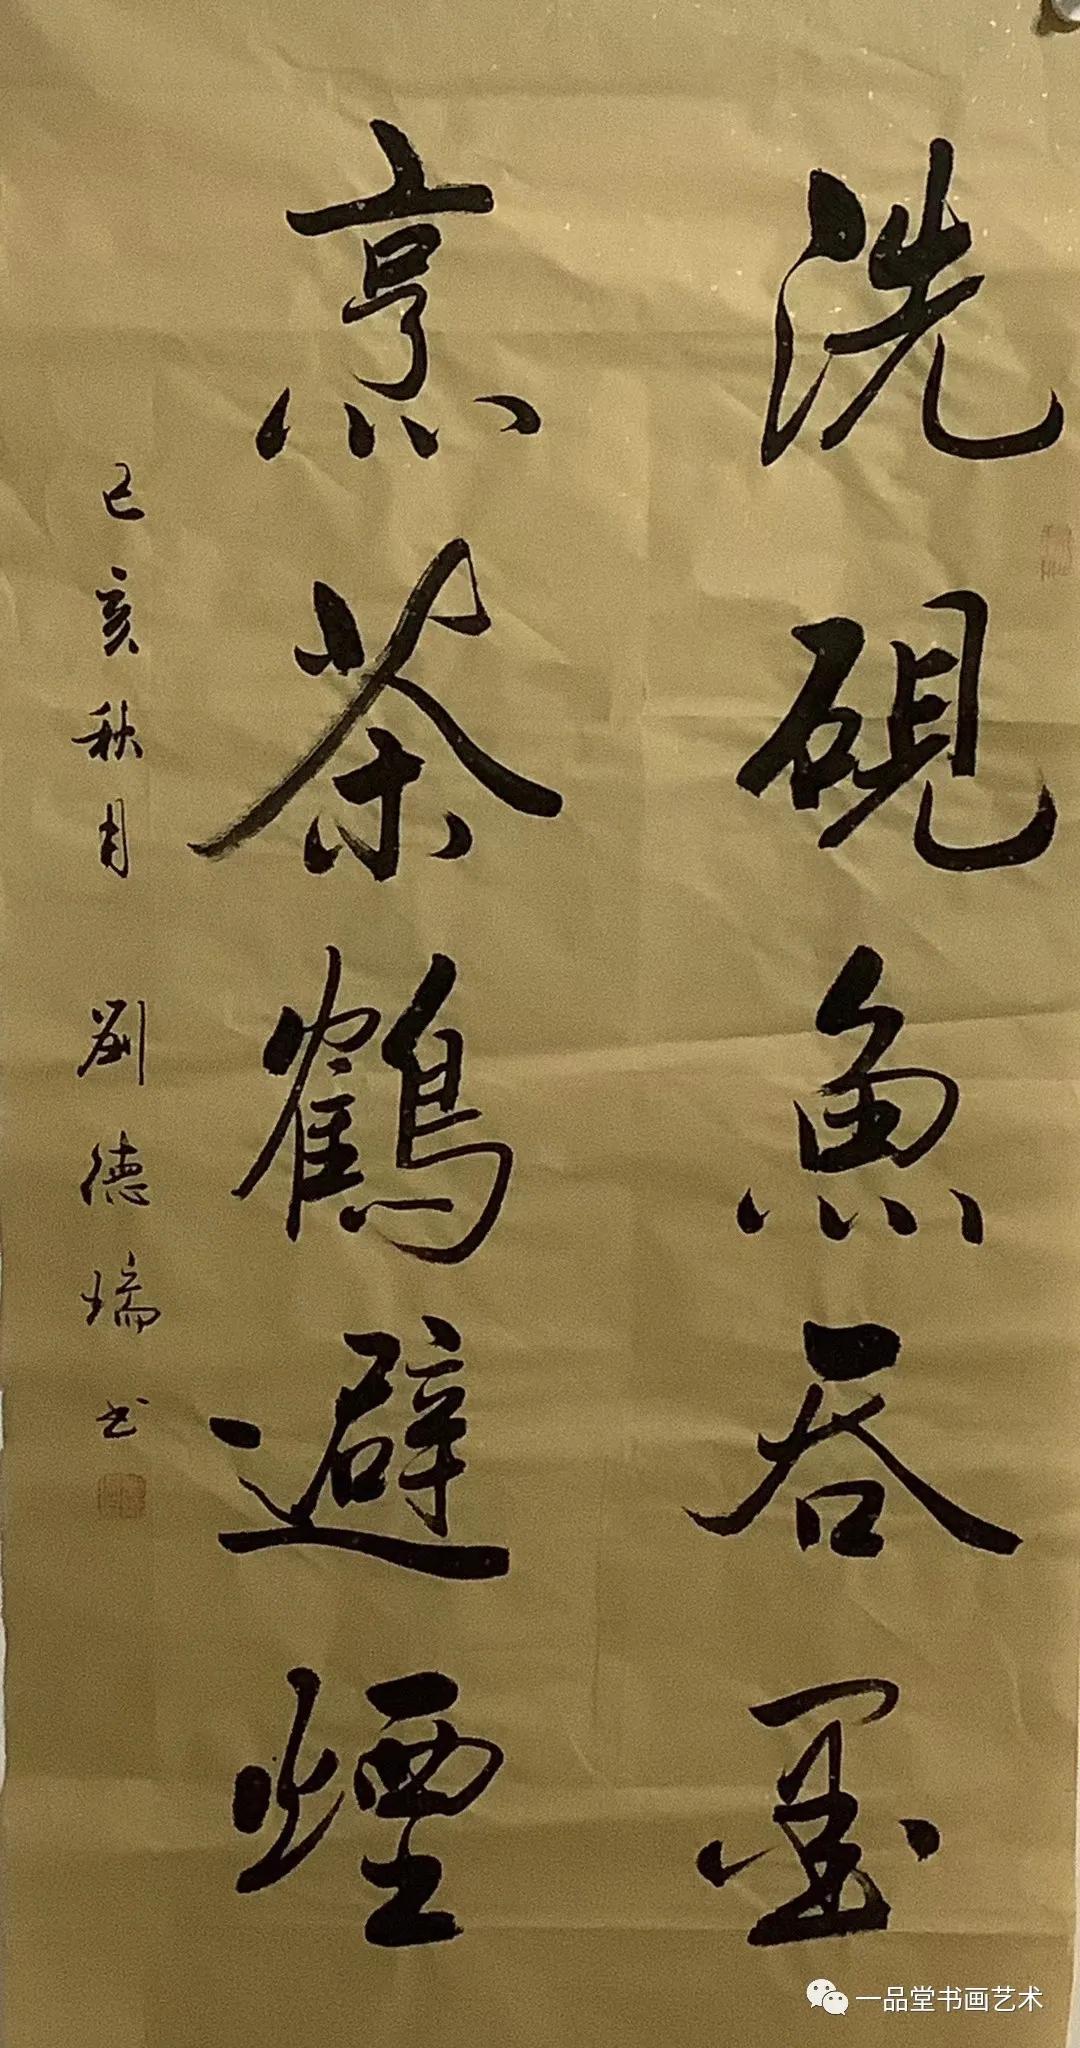 洗硯魚吞墨
烹茶鶴避煙
己亥秋月 劉德瑞书
一品堂书画艺术